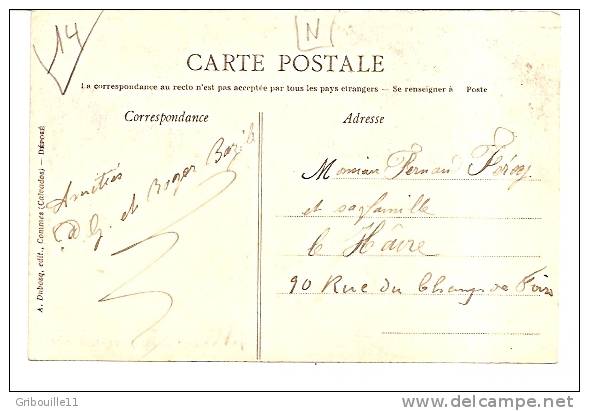 14
N
CARTE POSTALE
La correspondance au recto n'est pas acceptée par tous les pays etrangers — Se renseigner à Poste
Correspondance
Adresse
Amitiés
et Roger
Monsieur Fernand
et sa famille
le Hâvre
90 Rue du Champ de Foire
A. Dubosq, edit., Commes (Calvados) — DÉPOSÉ
Gribouille11
delcampe.net